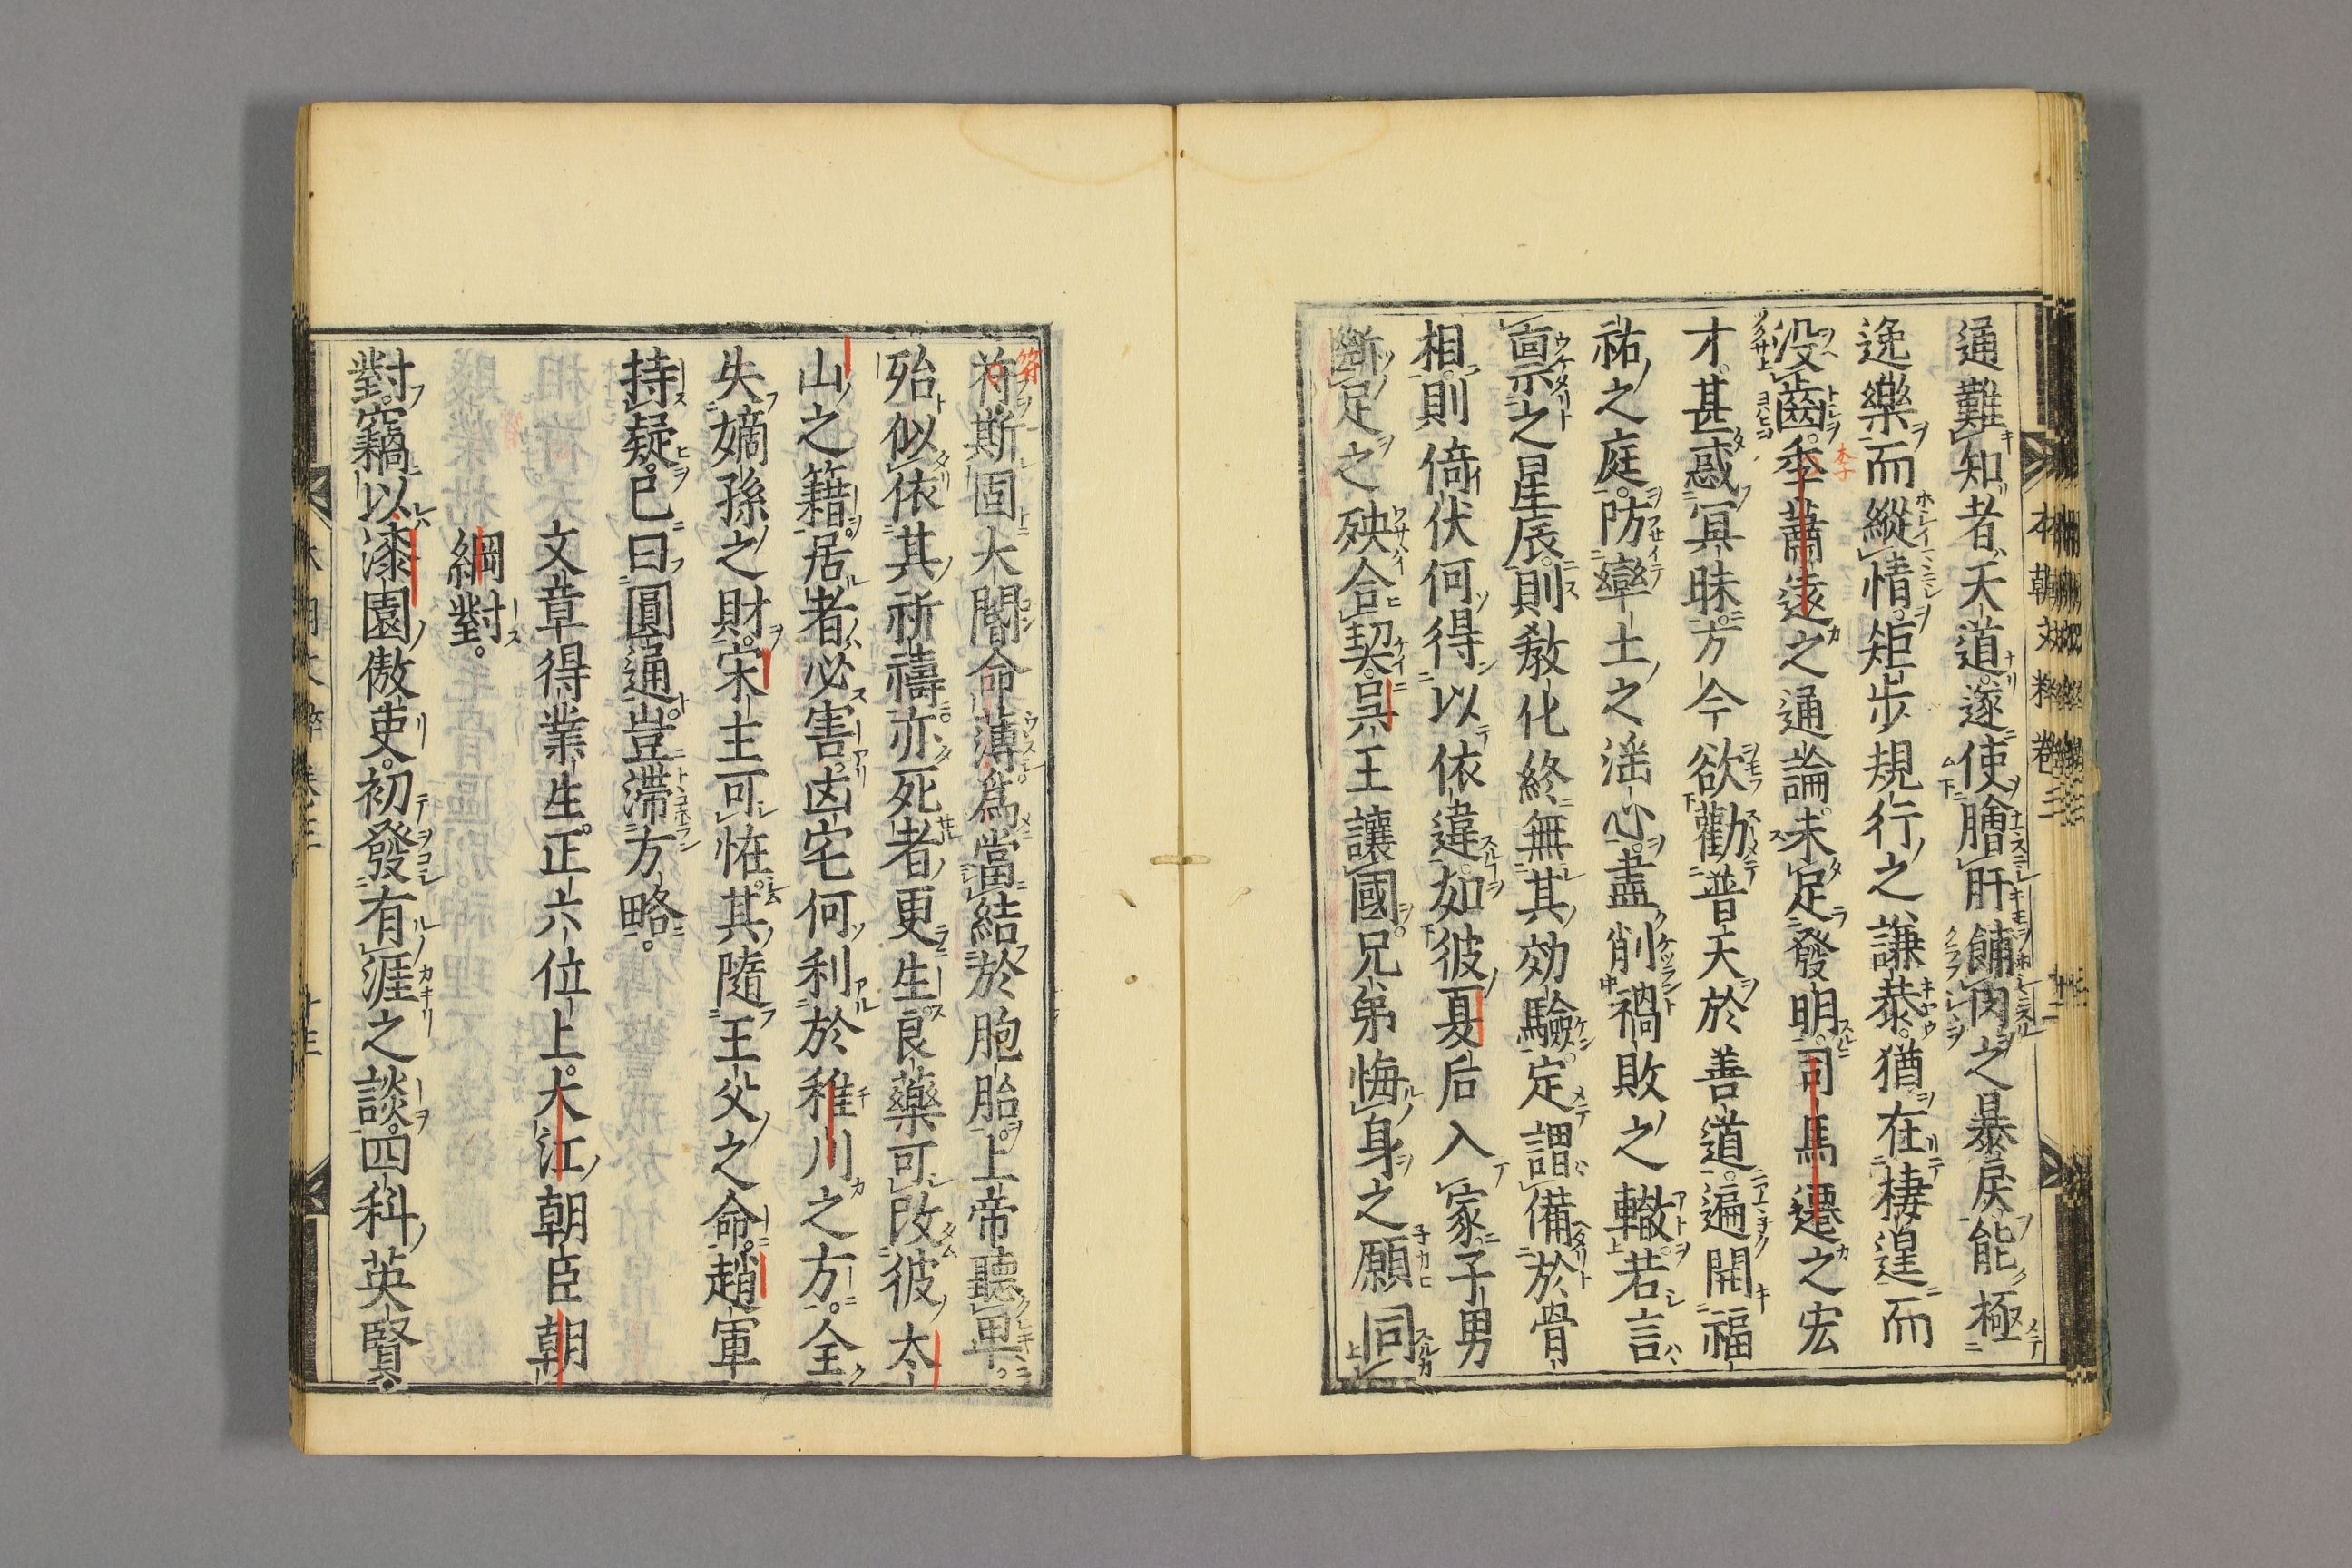 通難知者天道遂使膾肝餔肉之暴戻能極
逸樂而縱情矩步規行之謙恭猶在棲遑而
没齒季蕭遠之通論未定發明司馬遷之宏
才甚惑冥昧方今欲勸普天於善道遍開福
祐之庭防率土之淫心盡削禍敗之轍若言
稟之星辰則教化終無其効驗定謂備於骨
相則倚伏何得以依違如彼夏后入家子男
斷足之殃合契呉王讓國兄弟悔身之願同
符斯固大閽命薄爲當結於胞胎上帝聽卑
殆似依其祈禱亦死者更生良藥可改彼太
山之籍居者必害凶宅何利於稚川之方全
失嫡孫之財宋主可恠其隨王父之命趙軍
持疑已曰圓通豈滯方略
文章得業生正六位上大江朝臣朝
綱對
對竊以漆園傲吏初發有涯之談四科英賢
本朝文粹卷三
十二
本朝文粹卷三
十三